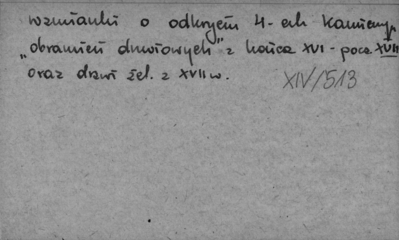 wzmianki o odkryciu 4-ech kamienn.
„obramień drzwiowych" z końca XVI - pocz. XVII
oraz drzwi żel. z XVII w.
XIV/513